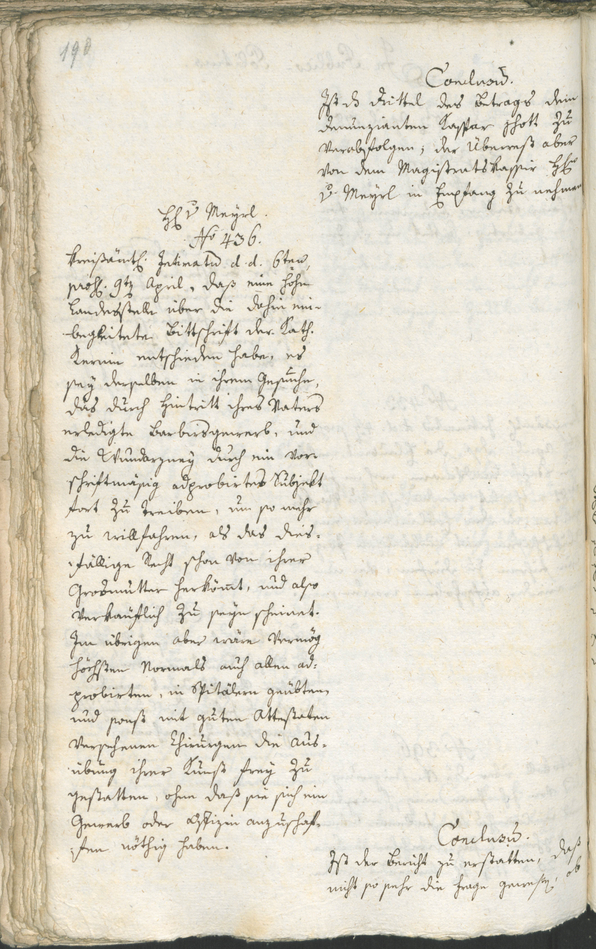 198
Conclusū.
Ist ds Drittel des Betrags dem
Denunzianten Kaspar zu
verabfolgen; der Überrest aber
von dem Magistratskassir HE
v Meyrl in Empfang zu nehmen
HE v Meyrl.
No 436.
Kreißämtl. Intimatū d. d. 6ten,
præs. 9t April, daß eine hohe
Landesstelle über die dahin ein-
begleitete Bittschrift der Kath.
Kernin entschieden habe, es
sey derselben in ihrem Gesuche,
das durch Hintritt ihres Vaters
erledigte Barbirgewerb, und
die Wundarzney durch ein vor-
schriftmäßig adprobirtes Subjekt
fort zu treiben, um so mehr
zu willfahren, als das dies-
fällige Recht schon von ihrer
Grosmutter herkömt, und also
verkäuflich zu seyn scheinet.
Im übrigen aber wäre vermög
höchsten Normals auch allen ad-
probirten, in Spitälern geübten,
und sonst mit guten Attestaten
versehenen Chirurgen die Aus-
übung ihrer Kunst frey zu
gestatten, ohne daß sie sich ein
Gewerb oder Offizin anzuschaf-
fen nöthig haben.
Conclusū.
Ist der Bericht zu erstatten, daß
nicht so sehr die Frage gewesen, ob